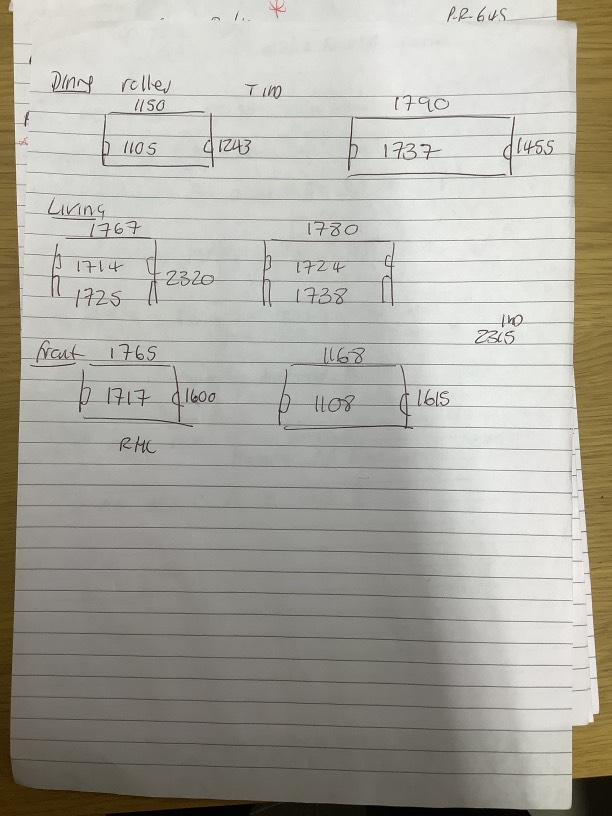 P.R. 645
Dinng roller Tino
1150 1790
1105 1243 1737 1455
Living
1767 1780
1714 2320 1724
1725 1738
2315
Front 1765 1168
1717 1600 1108 1615
RHC